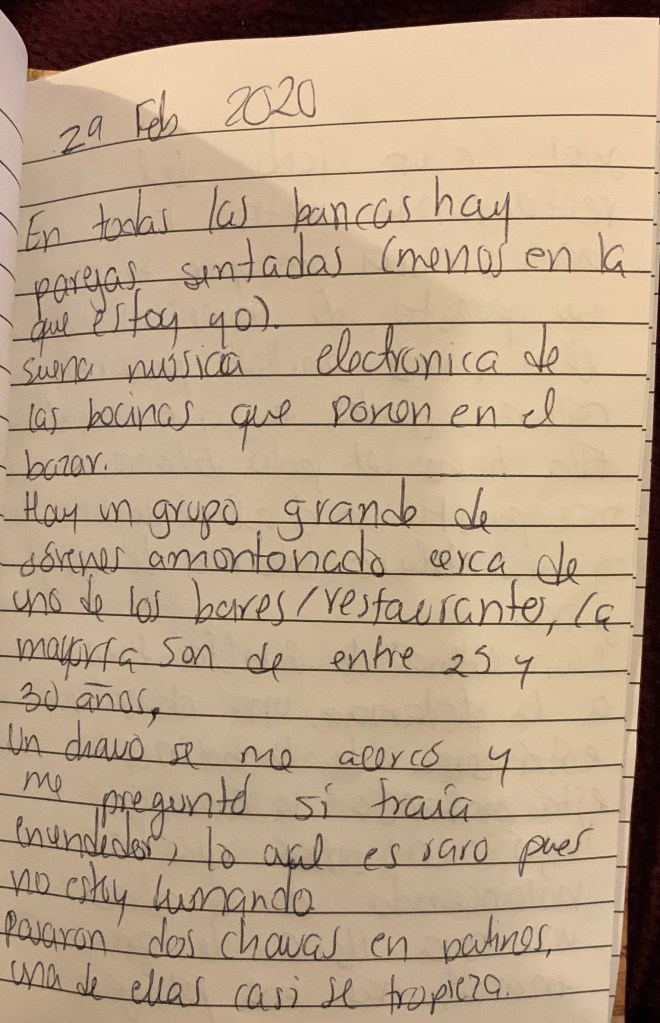 29 Feb 2020
En todas las bancas hay
parejas sentadas (menos en la
que estoy yo).
Suena música electronica de
las bocinas que ponen en el
bazar.
Hay un grupo grande de
jóvenes amontonado cerca de
uno de los bares/restaurantes, la
mayoría son de entre 25 y
30 años,
Un chavo se me acercó y
me preguntó si traía
encendedor, lo cual es raro pues
no estoy fumando
Pasaron dos chavas en patines,
una de ellas casi se tropieza.